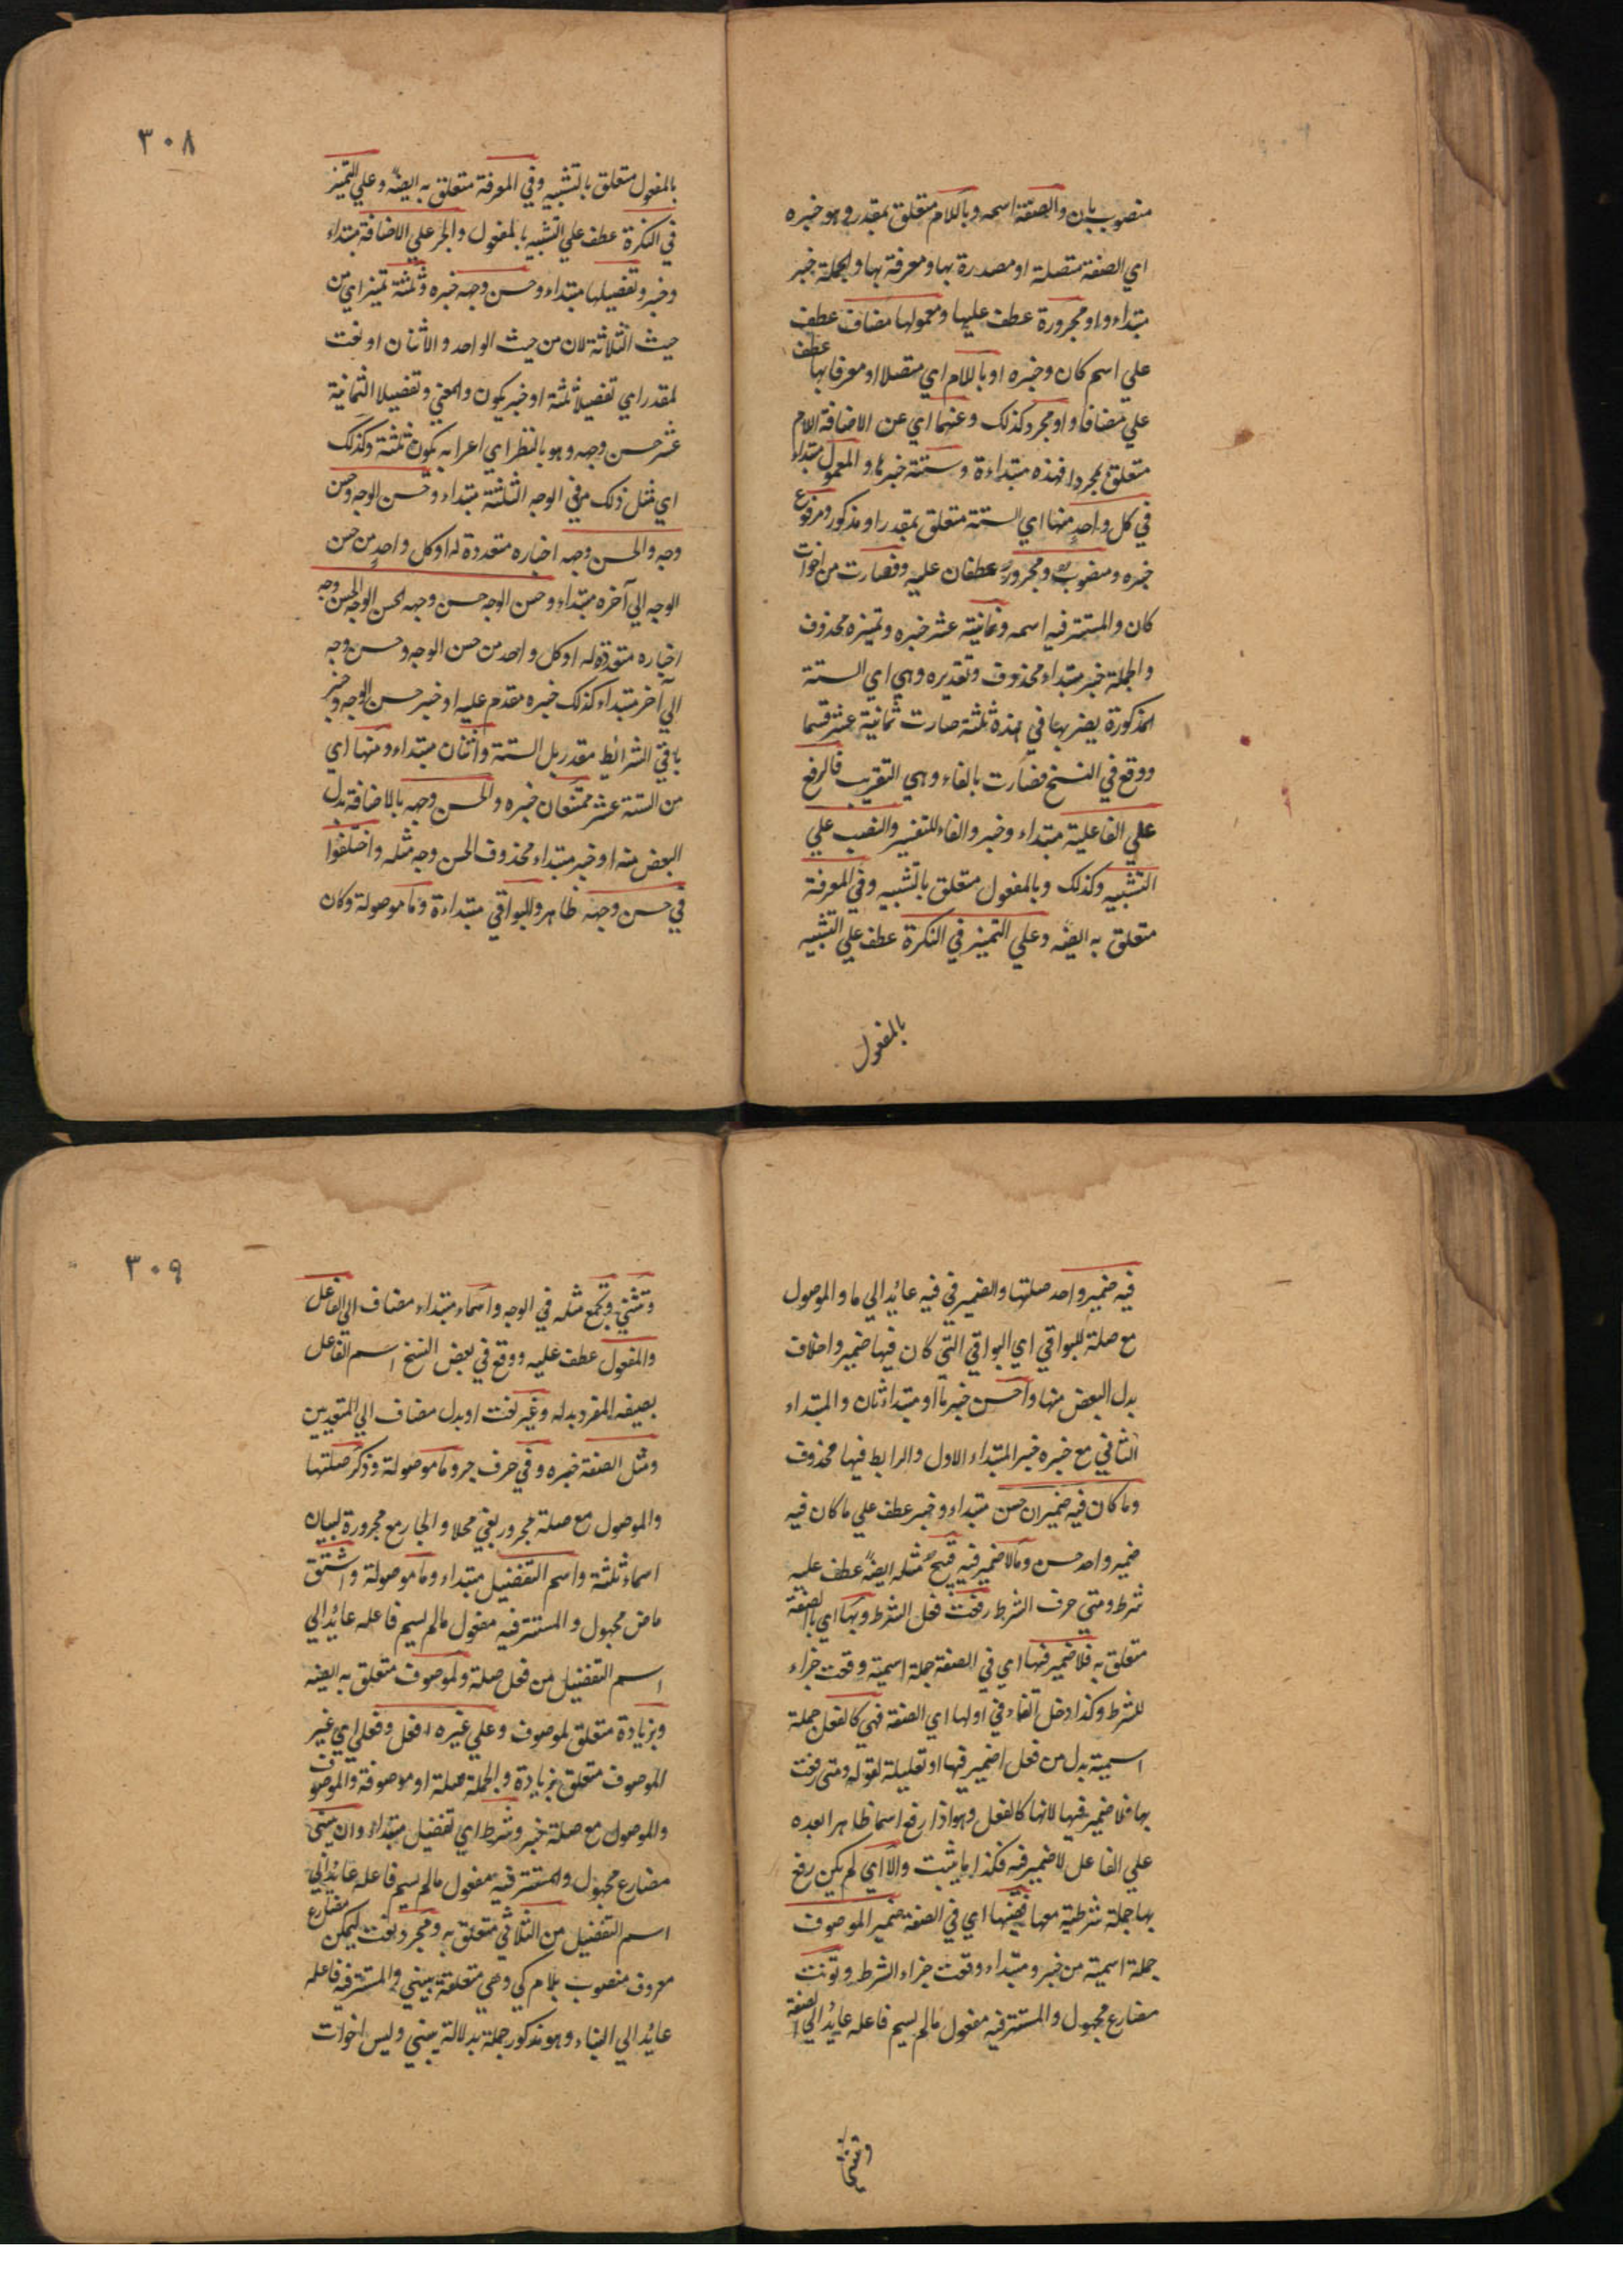 منصوب بان والصفة اسمه وباللام متعلق بمقدر وهو خبره
اي الصفة متصلة او مصدرة بها ومعرفة بها والجملة خبر
مبتداء واو مجرورة عطف عليها ومعمولها مضاف عطف
علي اسم كان وخبره او باللام اي متصلا او معرفا بها عطف
علي مضافا واو مجرد كذلك وعنهما اي عن الاضافة اللام
متعلق بمجردا فهذه مبتداءة وستة خبرها والمعمول مبتداء
في كل واحد منها اي الستة متعلق بمقدر او مذكور ومرفوع
خبره ومنصوب ومجرور عطفان عليه وفصارت من اخوات
كان والمستتر فيه اسمه وثمانية عشر خبره وتميزه محذوف
والجملة خبر مبتداء محذوف وتقديره وهي اي الستة
المذكورة يضربها في هذه ثلثة صارت ثمانية عشر قسما
ووقع في النسخ فصارت بالفاء وهي التقريب فالرفع
علي الفاعلية مبتداء وخبر والفاء للتفسير والنصب علي
التشبيه وكذلك وبالمفعول متعلق بالتشبيه وفي المعرفة
متعلق به ايضه وعلي التميز في النكرة عطف علي التشبيه
بالمفعول
٣٠٨
بالمفعول متعلق بالتشبيه وفي المعرفة متعلق به ايضه وعلي التميز
في النكرة عطف علي التشبيه بالمفعول والجر علي الاضافة مبتداء
وخبر وتفصيلها مبتداء وحسن وجهه خبره وثلثة تميز اي من
حيث الثلاثة لان من حيث الواحد والاثنان او نعت
لمقدر اي تفصيلا ثلثة او خبر يكون والمعني وتفصيلا الثمانية
عشر حسن وجهه وهو بالنظر اي اعرابه يكون ثلثة وكذلك
اي مثل ذلك مر في الوجه الثلثة مبتداء وحسن الوجه وحسن
وجه والحسن وجهه اخباره متعددة له او كل واحد من حسن
الوجه الي آخره مبتداء وحسن الوجه حسن وجهه الحسن الوجه الحسن وجه
اخباره متعددة له او كل واحد من حسن الوجه وحسن وجه
الي آخر مبتداء كذلك خبره مقدم عليه او خبر حسن الوجه وخبر
باقي الشرائط مقدر بل الستة واثنان مبتداء ومنها اي
من الستة عشر ممتنعان خبره والحسن وجهه بالاضافة بدل
البعض منه او خبر مبتداء محذوف الحسن وجه مثله واختلفوا
في حسن وجهه ظاهر والبواقي مبتداءة وما موصولة وكان
فيه ضمير واحد صلتها والضمير في فيه عائد الي ما والموصول
مع صلة للبواقي اي البواقي التي كان فيها ضمير واخلاف
بدل البعض منها واحسن خبرها او مبتداء ثان والمبتداء
الثاني مع خبره خبر المبتداء الاول والرابط فيها محذوف
وما كان فيه ضميران حسن مبتداء وخبر عطف علي ما كان فيه
ضمير واحد حسن ومالا ضمير فيه قبيح مثله ايضه عطف عليه
شرط ومتي حرف الشرط رفعت فعل الشرط وبها اي بالصفة
متعلق به فلا ضمير فيها اي في الصفة جملة اسمية وقعت جزاء
للشرط وكذا دخل الفاء في اولها اي الصفة فهي كالفعل جملة
اسمية بدل من فعل اضمير فيها او تعليلة لقوله ومتي رفعت
بها فلا ضمير فيها لانها كالفعل وهو اذا رفع اسما ظاهرا بعده
علي الفاعل لا ضمير فيه فكذا ما يثبت والا اي لم يكن رفع
بها جملة شرطية معها ففيها اي في الصفة ضمير الموصوف
جملة اسمية من خبر ومبتداء وقعت جزاء الشرط وتونث
مضارع مجهول والمستتر فيه مفعول مالم يسم فاعله عايد الي الصفة
وتثني
٣٠٩
وتثني وتجمع مثله في الوجه واسماء مبتداء مضاف الي الفاعل
والمفعول عطف عليه ووقع في بعض النسخ اسم الفاعل
بصيغه المفرد بدله وغير نعت او بدل مضاف الي المتعديين
ومثل الصفة خبره وفي حرف جر وما موصولة وذكر صلتها
والموصول مع صلة مجرور بفي محلا والجار مع مجرورة لبيان
اسماء ثلثة واسم التفضيل مبتداء وما موصولة واشتق
ماض مجهول والمستتر فيه مفعول مالم يسم فاعله عايد الي
اسم التفضيل من فعل صلة ولموصوف متعلق به ايضه
وبزيادة متعلق لموصوف وعلي غيره افعل وفعلي اي غير
الموصوف متعلق بزيادة والجملة صلة او موصوفة والموصوف
والموصول مع صلة خبر وشرط اي تفضيل مبتداء وان يبني
مضارع مجهول والمستتر فيه مفعول مالم يسم فاعله عايد الي
اسم التفضيل من الثلاثي متعلق به ومجرد نعت ليمكن مضارع
معروف منصوب بلام كي وهي متعلقة بيبني والمستتر فيه فاعله
عايد الي البناء وهو مذكور جملة بدلالة يبني وليس اخوات